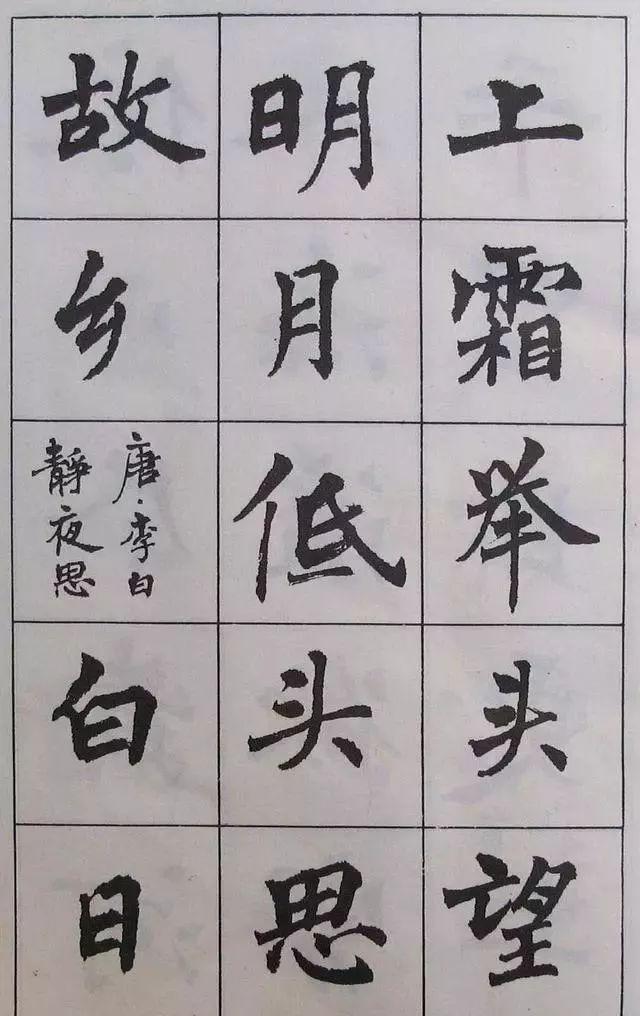 上霜举头望
明月低头思
故乡
唐·李白
靜夜思
白日